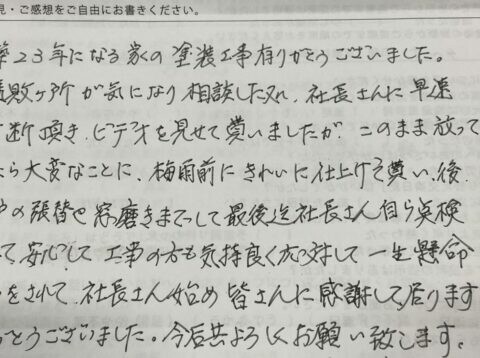 見・ご感想をご自由にお書きください。
築23年になる家の塗装工事有りがとうございました。
腐敗ヶ所が気になり相談した処、社長さんに早速
診断頂き、ビデオを見せて貰いましたが、このまま放って
たら大変なことに、梅雨前にきれいに仕上げて貰い、後
戸の張替や窓磨きまでして最後迄社長さん自ら点検
して、安心して工事の方も気持良く応対して一生懸命
をされて、社長さん始め皆さんに感謝して居ります
とうございました。今后共よろしくお願い致します。